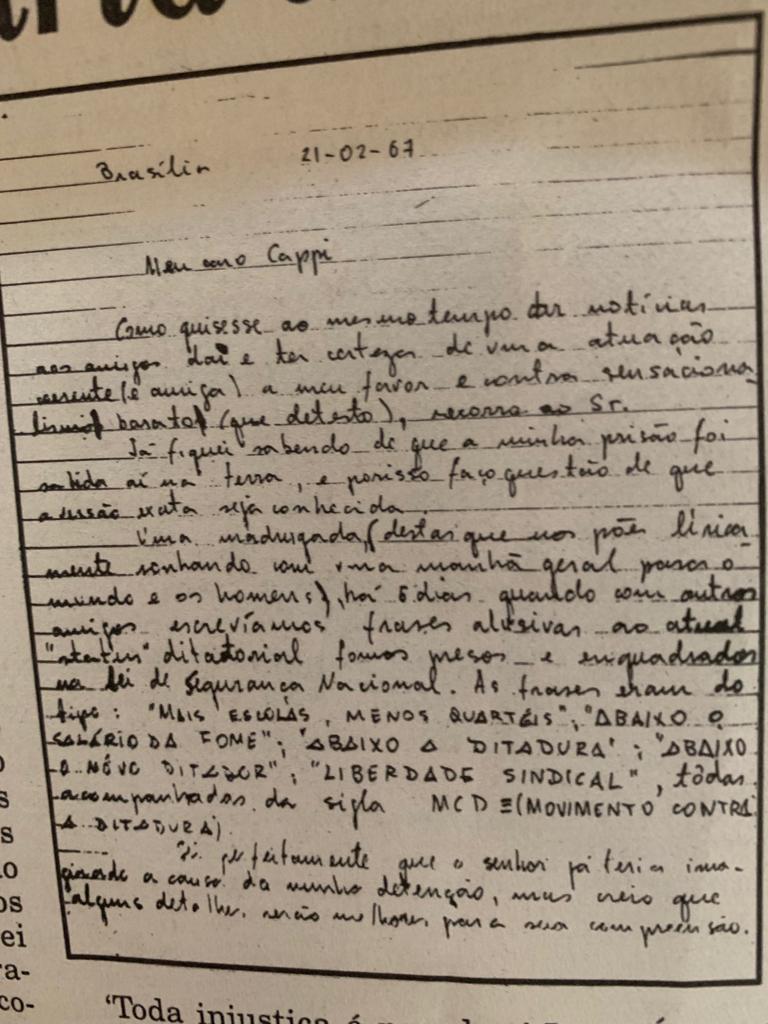 Brasília 21-02-67
Meu caro Cappi
Como quisesse ao mesmo tempo dar notícias
aos amigos daí e ter certeza de uma atuação
(e amiga) a meu favor e contra sensaciona
lismo barato (que detesto), recorro ao Sr.
Já fiquei sabendo de que a minha prisão foi
sabida aí na terra, e porisso faço questão de que
a versão exata seja conhecida.
Uma madrugada, (destas que nos põe lírica
mente sonhando com uma manhã geral para o
mundo e os homens), há 6 dias quando com outros
amigos escrevíamos frases alusivas ao atual
"status" ditatorial fomos presos e enquadrados
na Lei de Segurança Nacional. As frases eram do
tipo: "MAIS ESCOLAS, MENOS QUARTÉIS"; "ABAIXO O
SALÁRIO DA FOME"; "ABAIXO A DITADURA"; "ABAIXO
O NÔVO DITADOR"; "LIBERDADE SINDICAL", tôdas
acompanhadas da sigla MCD =(MOVIMENTO CONTRA
A DITADURA).
Sei perfeitamente que o senhor já teria ima-
ginado a causa da minha detenção, mas creio que
alguns detalhes serão melhores para sua compreensão.
s
s
ão
os
ei
ra-
co-
'Toda injustiça é